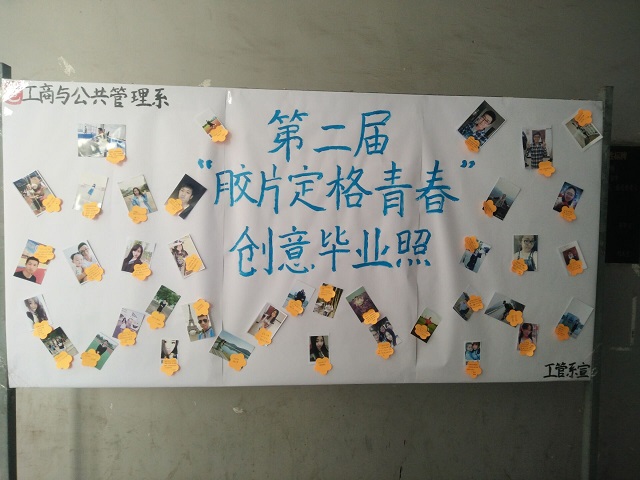 工商与公共管理系
第二届
“胶片定格青春”
创意毕业照
工管系宣